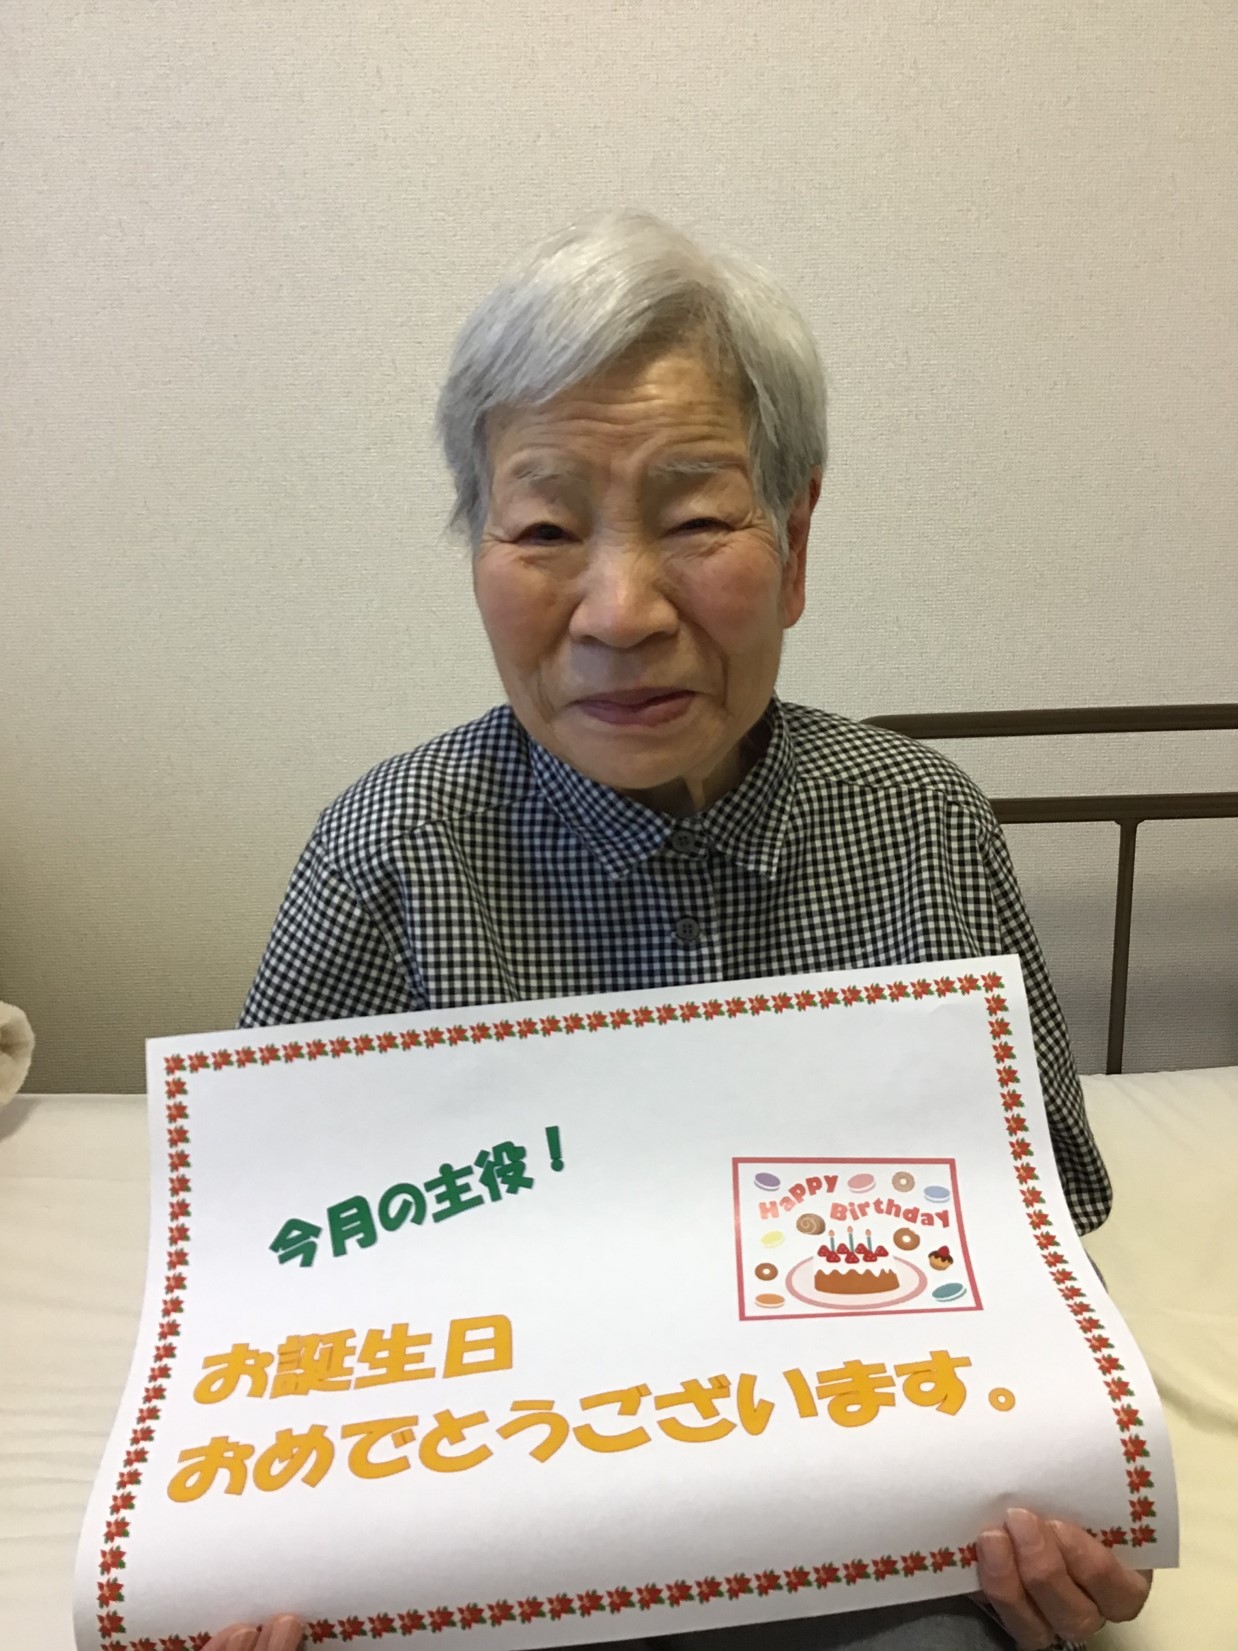 今月の主役！
Happy Birthday
お誕生日
おめでとうございます。